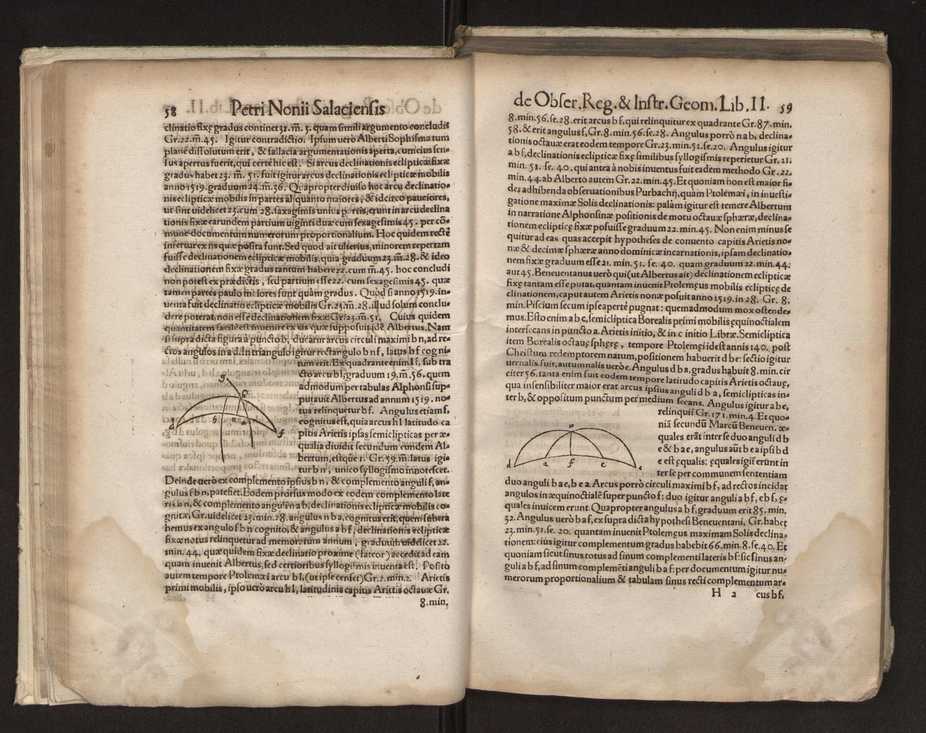 58 Petri Nonii Salaciensis
clinatio fixę gradus continet 31. m̃. 5. quam simili argumento concludis
Gr. 22. m̃. 45. Igitur contradictio. Ipsum verò Alberti Sophisma tum
planè dissolutum erit, & fallacia argumentationis aperta, cum eius sen-
sus apertus fuerit, qui certè hic est. Si arcus declinationis eclipticæ fixæ
gradus habet 23. m̃. 51. fuit igitur arcus declinationis eclipticæ mobilis
anno 1519. graduum 24. m̃. 36. Quapropter diuiso hoc arcu declinatio-
nis eclipticæ mobilis in partes aliquanto maiores, & idcirco pauciores,
ut sint videlicet 23. cum 28. sexagesimis unius partis, erunt in arcu declina
tionis fixæ earundem partium uiginti duæ cum sexagesimis 45. per cō-
mune documentum numerorum proportionalium. Hoc quidem rectè
infertur ex ijs quæ posita sunt. Sed quod ait ulterius, minorem repertam
fuisse declinationem eclipticæ mobilis, quia graduum 23. m̃. 28. & ideo
declinationem fixæ gradus tantum habere 22. cum m̃. 45. hoc concludi
non potest ex prædictis, sed partium esse 22. cum sexagesimis 45. quæ
tamen partes paulo maiores sunt quàm gradus. Quòd si anno 1519. in-
uenta fuit declinatio eclipticæ mobilis Gr. 23. m̃. 28. illud solum conclu-
dere poterat, non esse declinationem fixæ Gr. 23. m̃. 51. Cuius quidem
quantitatem facilè est inuenire ex ijs quæ supposuit idē Albertus. Nam
si supra dicta figura à puncto b, ducatur arcus circuli maximi b n, ad re-
ctos angulos in a d. In triangulo igitur rectangulo b n f, latus b f cogni-
tum erit. Ex quadrante enim l f, sub tra
cto arcu b l, graduum 19. m̃. 56. quem
admodum per tabulas Alphonsi sup-
putauit Albertus ad annum 1519. no-
tus relinquetur b f. Angulus etiam f,
cognitus est, quia arcus h l latitudo ca
pitis Arietis ipsas semieclipticas per æ-
qualia diuidit secundum eundem Al-
bertum, estque Gr. 59. m̃. latus igi-
tur b n, unico syllogismo innotescet.
g c b a n d f
Deinde verò ex complemento ipsius b n, & complemento anguli f, an-
gulus f b n, patefiet. Eodem prorsus modo ex eodem complemento late
ris b n, & complemento anguli n a b, declinationis eclipticæ mobilis co-
gnitæ, Gr. videlicet 23. min. 28. angulus n b a, cognitus erit, quem si subtra
hemus ex angulo f b n cognito, & angulus a b f, declinationis eclipticæ
fixæ notus relinquetur ad memoratum annum, graduum videlicet 22.
min. 44. quæ quidem fixæ declinatio proxime (fateor) accedit ad eam
quam inuenit Albertus, sed certioribus syllogismis inuenta est. Posito
autem tempore Ptolemæi arcu h l, (ut ipse censet) Gr. 2. min. 2. Arietis
primi mobilis, ipso verò arcu b l, latitudinis capitis Arietis octauæ Gr.
8. min.
de Obser. Reg. & Instr. Geom. Lib. II. 59
8. min. 56. se. 28. erit arcus b f, qui relinquitur ex quadrante Gr. 87. min.
58. & erit angulus f, Gr. 8. min. 56. se. 28. Angulus porrò n a b, declina-
tionis octauæ erat eodem tempore Gr. 23. min. 51. se. 20. Angulus igitur
a b f, declinationis eclipticæ fixę similibus syllogismis reperietur Gr. 21.
min. 51. se. 40. qui antea à nobis inuentus fuit eadem methodo Gr. 22.
min. 44. ab Alberto autem Gr. 22. min. 45. Et quoniam non est maior fi-
des adhibenda obseruationibus Purbachij, quàm Ptolemæi, in inuesti-
gatione maximæ Solis declinationis: palàm igitur est temere Albertum
in narratione Alphonsinæ positionis de motu octauæ sphæræ, declina-
tionem eclipticę fixæ posuisse graduum 22. min. 45. Non enim minus se
quitur ad eas quas accepit hypotheses de conuento capitis Arietis no-
næ & decimæ sphæræ anno dominicæ incarnationis, ipsam declinatio-
nem fixæ graduum esse 21. min. 51. se. 40. quam graduum 22. min. 44.
aut 45. Beneuentanus uerò qui (ut Albertus ait) declinationem eclipticæ
fixę tantam esse putat, quantam inuenit Ptolemęus mobilis eclipticę de
clinationem, caput autem Arietis nonæ posuit anno 1519. in 28. Gr. 8.
min. Piscium secum ipse apertè pugnat: quemadmodum mox ostende-
mus. Esto enim a b c, semicliptica Borealis primi mobilis equinoctialem
intersecans in puncto a. Arietis initio, & in c initio Libræ. Semicliptica
item Borealis octauę sphęrę, tempore Ptolemęi id est annis 140. post
Christum redemptorem natum, positionem habuerit d b e: sectio igitur
uernalis fuit, autumnalis uerò e. Angulus d b a. gradus habuit 8. min. cir
citer 56. tanta enim fuit eodem tempore latitudo capitis Arietis octauę,
qua insensibiliter maior erat arcus ipsius anguli d b a, semiclipticas in-
ter b, & oppositum punctum per medium secans. Angulus igitur a b e,
relinquit Gr. 171. min. 4. Et quo-
niā secundū Marcū Beneuen. æ-
quales erāt inter se duo anguli d b
e & b a e, angulus aūt b e a ipsi b d
e est ęqualis: ęquales igiť erūnt in
ter se per communem sententiam
b d a f c e
duo anguli b a e, b e a. Arcus porrò circuli maximi b f, ad rectos incidat
angulos in æquinoctialē super puncto f: duo igitur anguli a b f, e b f, ę-
quales inuicem erunt. Quapropter angulus a b f, graduum erit 85. min.
32. Angulus verò b a f, ex supra dicta hypothesi Beneuentani, Gr. habet
23. min. 51. se. 20. quantam inuenit Ptolemęus maximam Solis declina-
tionem: eius igitur complementum gradus habebit 66. min. 8. se. 40. Et
quoniam sicut sinus totus ad sinum complementi lateris b f: sic sinus an-
guli a b f, ad sinum complemēti anguli b a f: per documentum igitur nu-
merorum proportionalium & tabulam sinus recti complementum ar-
H 2 cus b f.